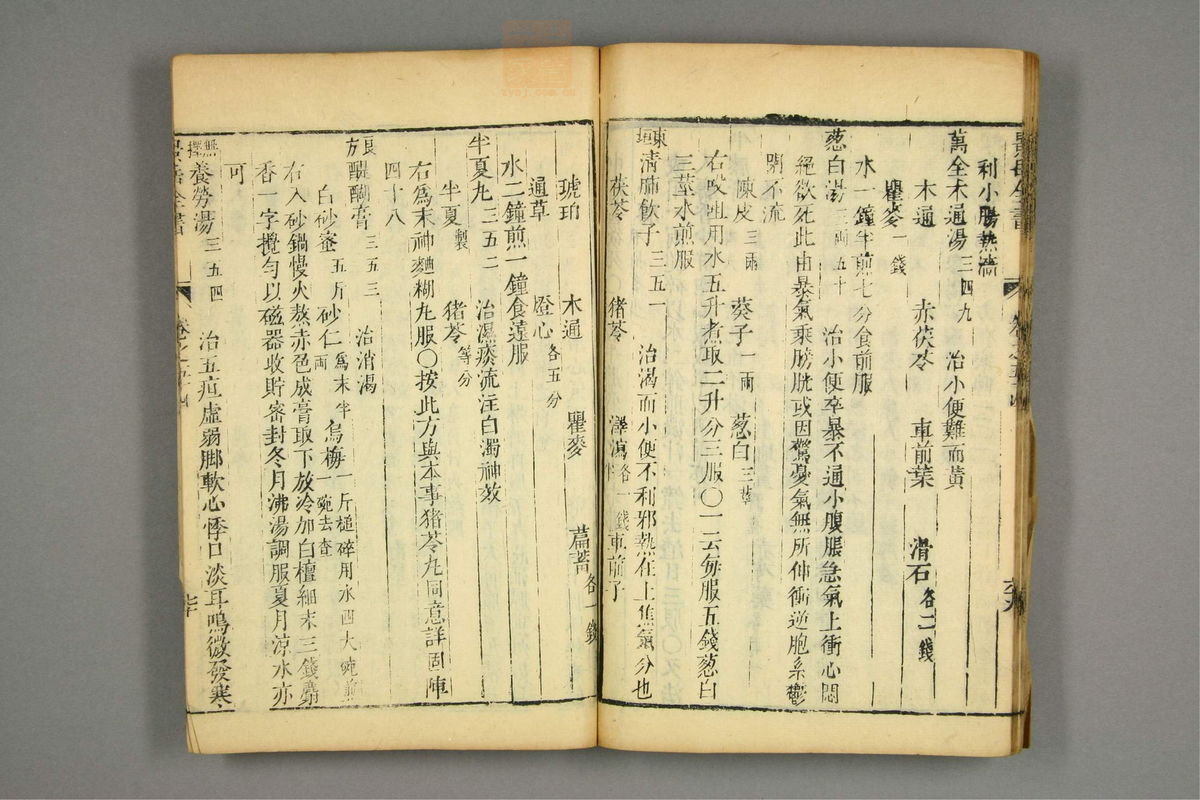 利小腸熱濇
萬全木通湯三四九 治小便難而黃
木通 赤茯苓 車前葉 滑石各二錢
瞿麥一錢
水一鐘半煎七分食前服
葱白湯三兩五十 治小便卒暴不通小腹脹急氣上衝心悶
絕欲死此由暴氣乘膀胱或因驚憂氣無所伸衝逆胞系鬱
閉不流
陳皮三兩 葵子一兩 葱白三莖
右㕮咀用水五升煮取二升分三服〇一云每服五錢葱白
三莖水煎服
東垣清肺飲子三五一 治渴而小便不利邪熱在上焦氣分也
茯苓 猪苓 澤瀉各一錢 車前子
琥珀 木通 瞿麥 萹蓄各一錢
通草 燈心各五分
水二鐘煎一鐘食遠服
半夏丸三五二 治濕痰流注白濁神效
半夏製 猪苓等分
右為末神麯糊丸服〇按此方與本事猪苓丸同意詳固陣
四十八
良方醍醐膏三五三 治消渴
白砂蜜五斤 砂仁為末半兩 烏梅一斤槌碎用水四大碗煎一碗去查
右入砂鍋慢火熬赤色成膏取下放冷加白檀細末三錢麝
香一字攪勻以磁器收貯密封冬月沸湯調服夏月涼水亦
可
無擇養勞湯三五四 治五疸虛弱脚軟心悸口淡耳鳴微發寒